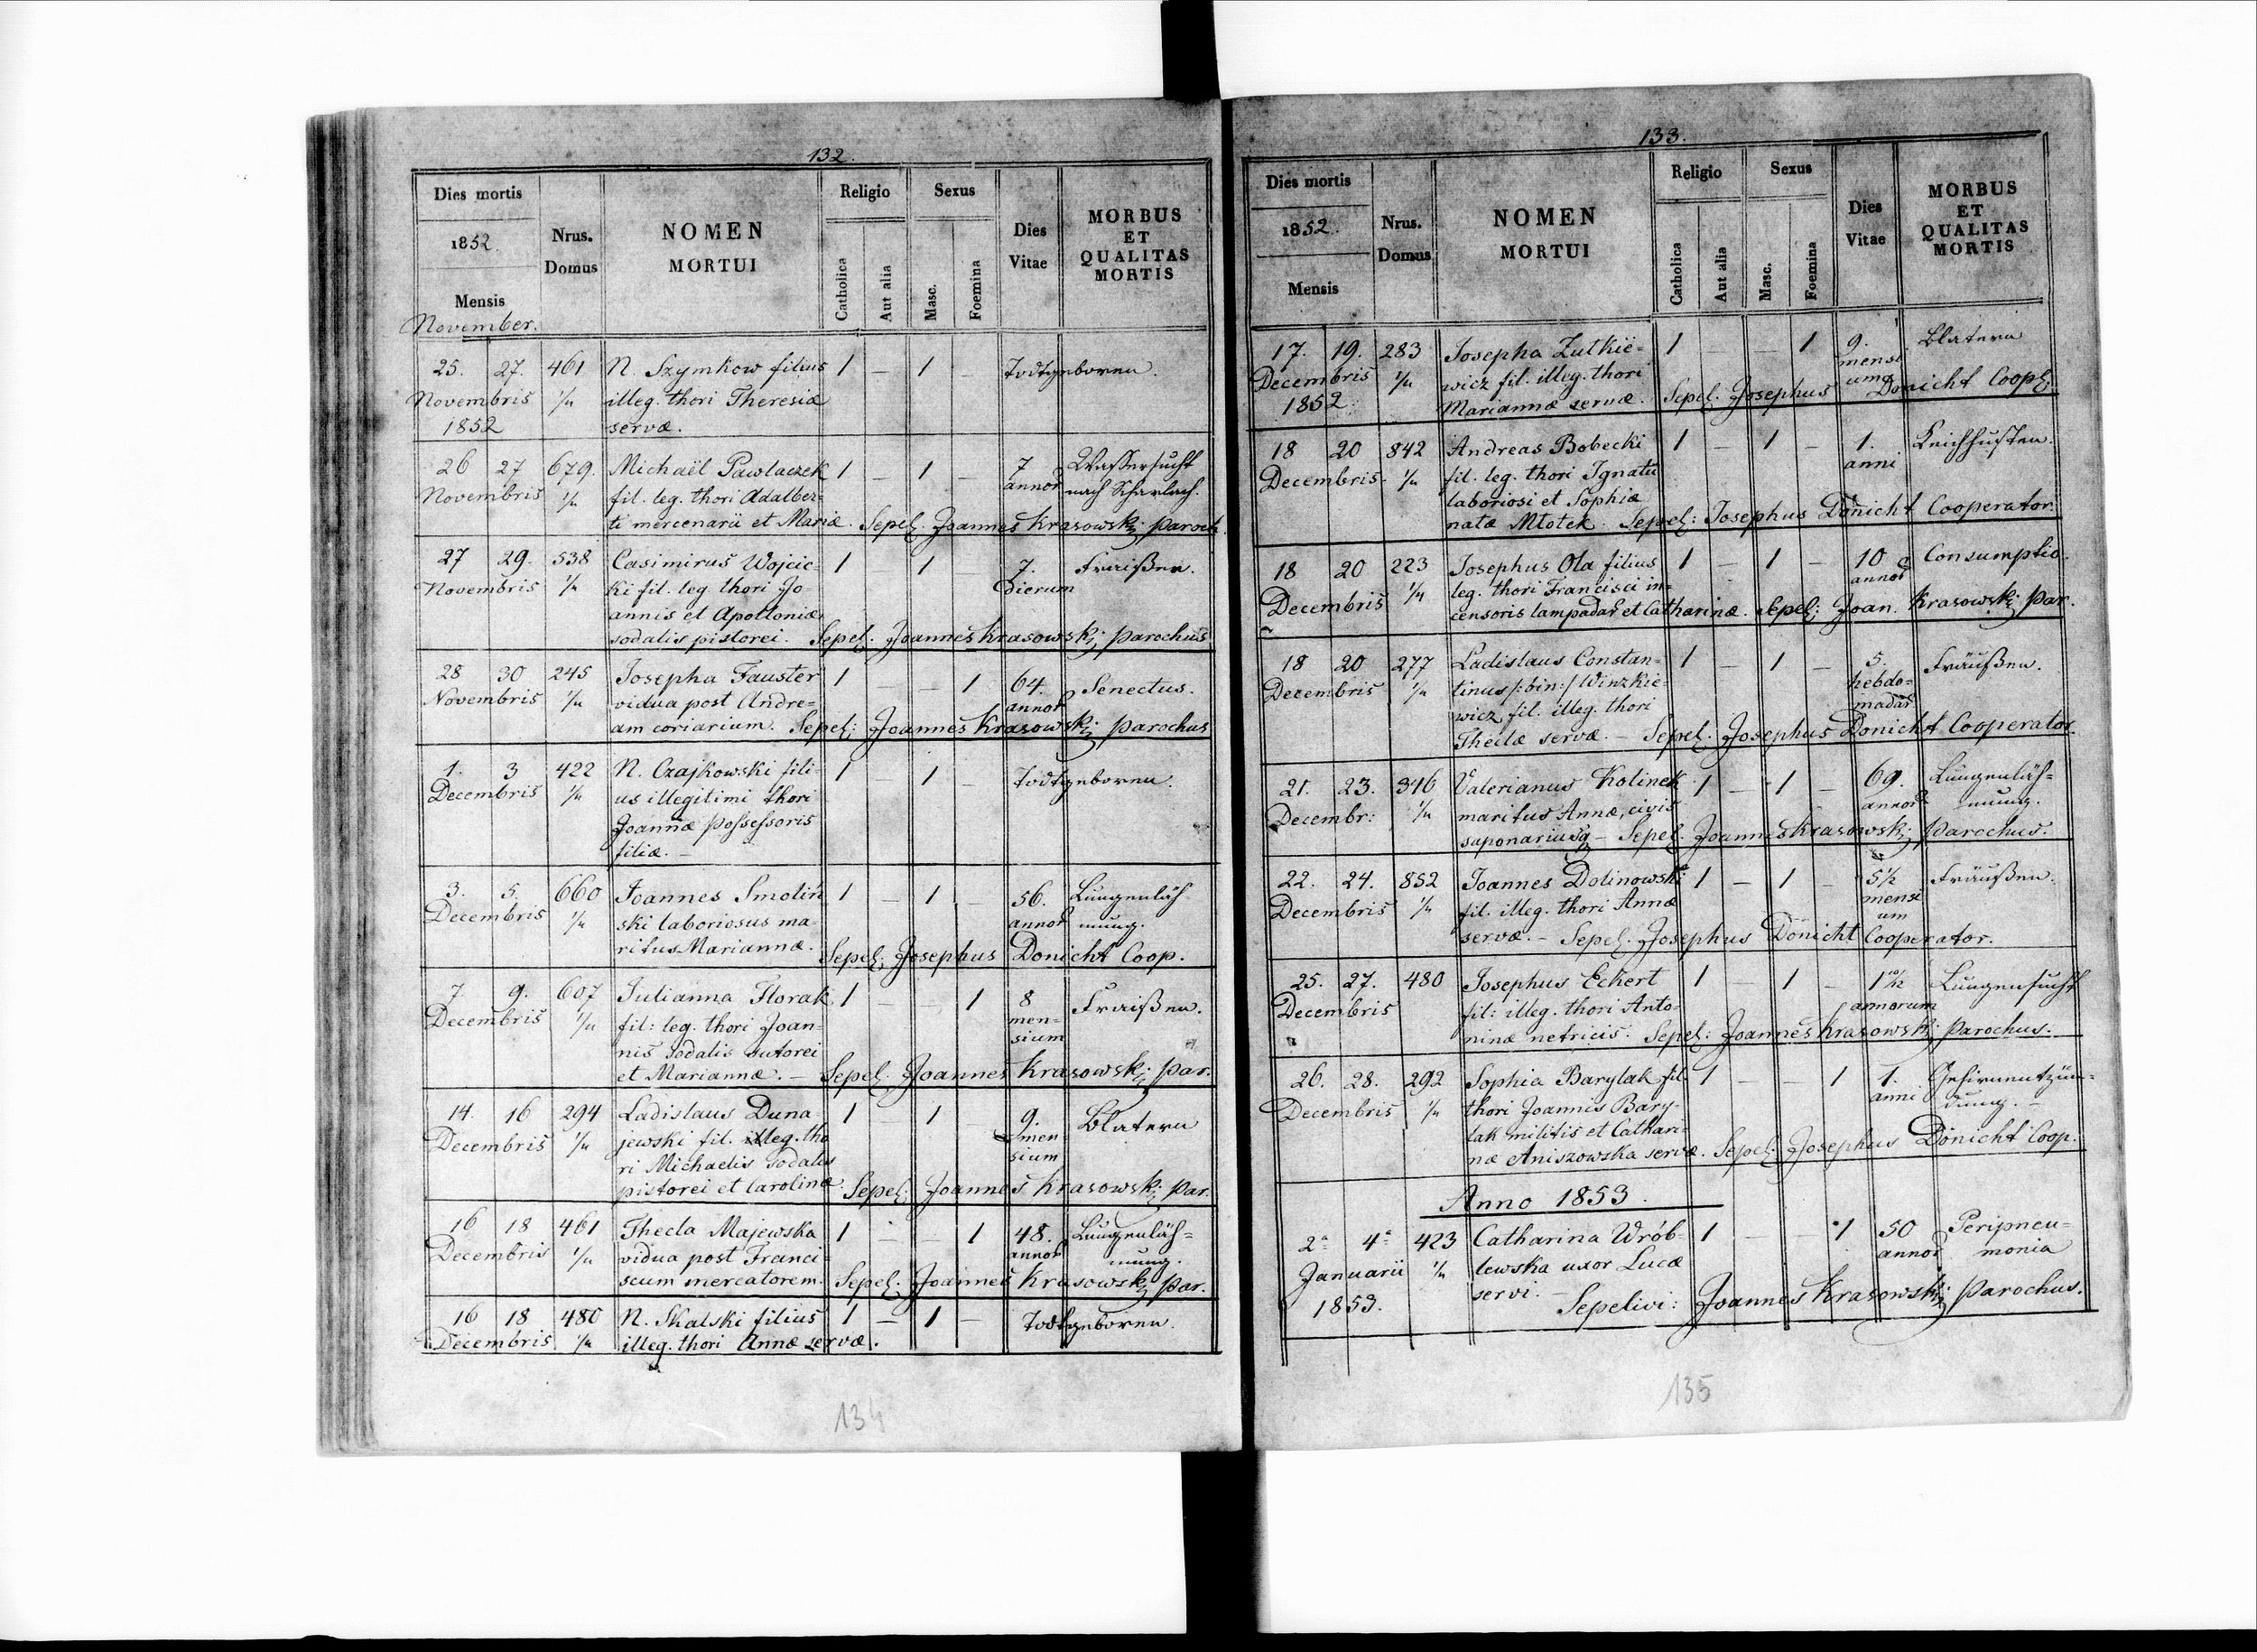 132.
Dies mortis
1852.
Mensis
November.
Nrus.
Domus
NOMEN
MORTUI
Religio
Catholica
Aut alia
Sexus
Masc.
Foemina
Dies
Vitae
MORBUS
ET
QUALITAS
MORTIS
25. 27. 461 N. Szymkow filius 1 — 1 — Todtgeboren.
Novembris 1/u illeg. thori Theresiæ
1852 servæ.
26 27 679. Michaël Pawlaczek 1 — 1 — 7 Wassersucht
Novembris 1/u fil. leg. thori Adalber= annor nach Scharlach.
ti mercenarii et Mariæ. Sepel. Joannes Krasowski Paroch.
27 29. 538 Casimirus Wojcic= 1 1 7. Fraißen.
Novembris 1/u ki fil. leg thori Jo dierum
annis et Apolloniæ
sodalis pistorei. Sepel. Joannes Krasowski Parochus
28 30 245 Josepha Fauster 1 — — 1 64. Senectus.
Novembris 1/u vidua post Andre= annor
am coriarium. Sepel: Joannes Krasowski Parochus
1. 3 422 N. Czajkowski fili= 1 1 — Todtgeboren.
Decembris 1/u us illegitimi thori
Joannæ Possessoris
filiæ. —
3. 5. 660 Joannes Smoliń 1 — 1 — 56. Lungenläh
Decembris 1/u ski laboriosus ma= annor mung.
ritus Mariannæ. Sepel: Josephus Donicht Coop.
7. 9. 607 Julianna Florak 1 — — 1 8 Fraißen.
Decembris 1/u fil: leg. thori Joan= men=
nis sodalis sutorei sium
et Mariannæ. — Sepel. Joannes Krasowski Par.
14. 16 294 Ladislaus Duna= 1 — 1 — 9. Blatern
Decembris 1/u jewski fil. illeg. tho men=
ri Michaelis sodalis sium
pistorei et Carolinæ. Sepel: Joannes Krasowski Par.
16 18 461 Thecla Majewska 1 — — 1 48. Lungenläh=
Decembris 1/u vidua post Franci= annor mung.
scum mercatorem. Sepel. Joannes Krasowski Par.
16 18 480 N. Skalski filius 1 — 1 — Todtgeboren.
Decembris 1/u illeg. thori Annæ servæ.
134
133.
Dies mortis
1852.
Mensis
Nrus.
Domus
NOMEN
MORTUI
Religio
Catholica
Aut alia
Sexus
Masc.
Foemina
Dies
Vitae
MORBUS
ET
QUALITAS
MORTIS
17. 19. 283 Josepha Zutkie= 1 — — 1 9. Blatern
Decembris 1/u wicz fil. illeg. thori mensi
1852 Mariannæ servæ. Sepel. Josephus um Donicht Coop.
18 20 842 Andreas Bobecki 1 — 1 — 1. Keichhusten.
Decembris 1/u fil. leg. thori Ignatii anni
laboriosi et Sophiæ
natæ Młotek. Sepel: Josephus Donicht Cooperator.
18 20 223 Josephus Ola filius 1 — 1 — 10 Consumptio.
Decembris 1/u leg. thori Francisci in= annor
censoris lampadar et Catharinæ. Sepel: Joan. Krasowski Par.
18 20 277 Ladislaus Constan= 1 — 1 — 5. Fräußen.
Decembris 1/u tinus /:bin:/ Winzkie= hebdo=
wicz fil. illeg. thori madar
Theclæ servæ. — Sepel. Josephus Donicht Cooperator.
21. 23. 346 Valerianus Kolinek 1 — 1 — 69. Lungenläh=
Decembr: 1/u maritus Annæ, civis annor mung.
saponarius — Sepel. Joannes Krasowski Parochus.
22. 24. 852 Joannes Dolinowski 1 — 1 — 5½ Fräußen.
Decembris 1/u fil. illeg. thori Annæ mensi
um
servæ. — Sepel. Josephus Donicht Cooperator.
25. 27. 480 Josephus Eckert 1 — 1 — Lungensucht
Decembris fil: illeg. thori Anto= annorum
ninæ netricis. Sepel: Joannes Krasowski Parochus.
26. 28. 292 Sophia Barylak fil. 1 — — 1 1. Gehirnentzün=
Decembris 1/u thori Joannis Bary= anni dung. —
lak militis et Cathari=
næ Aniszowska servæ. Sepel: Josephus Donicht Coop.
Anno 1853.
2ª 4ª 423 Catharina Wrób= 1 — — 1 50 Peripneu=
Januarii 1/u lewska uxor Lucæ annor monia
1853. servi. — Sepelivi: Joannes Krasowski Parochus.
135